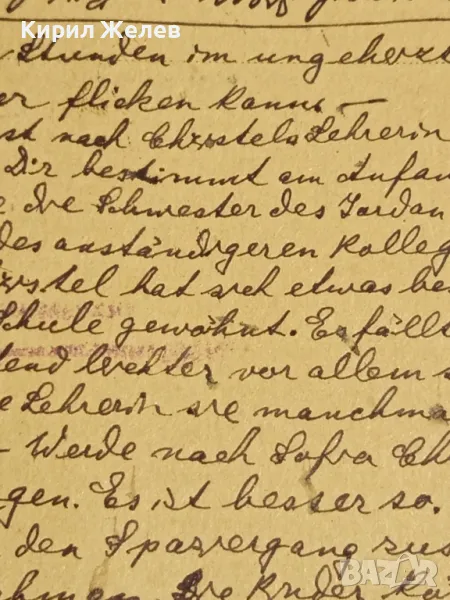 Кирил Желев
Stunden im ungeheizt
er flicken kann. —
ist nach Christels Lehrerin
Dir bestimmt am Anfan
e die Schwester des Jordan
des anständigeren Kolleg
ristel hat sich etwas be
Schule gewöhnt. Es fällt
tend leichter vor allem s
e Lehrerin sie manchma
– Werde nach Sofia Ch
gen. Es ist besser so.
den Spaziergang zus
ehmen. Die Kinder Kä
bazar.bg